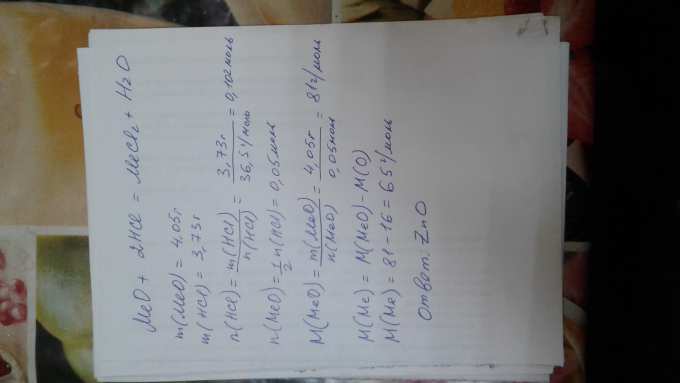 MeO + 2HCl = MeCl₂ + H₂O
m(MeO) = 4,05г
m(HCl) = 3,73г
n(HCl) = m(HCl)/n(HCl) = 3,73г/36,5г/моль = 0,102моль
n(MeO) = 1/2 n(HCl) = 0,05моль
M(MeO) = m(MeO)/n(MeO) = 4,05г/0,05моль = 81г/моль
M(Me) = M(MeO) - M(O)
M(Me) = 81 - 16 = 65г/моль
Ответ: ZnO